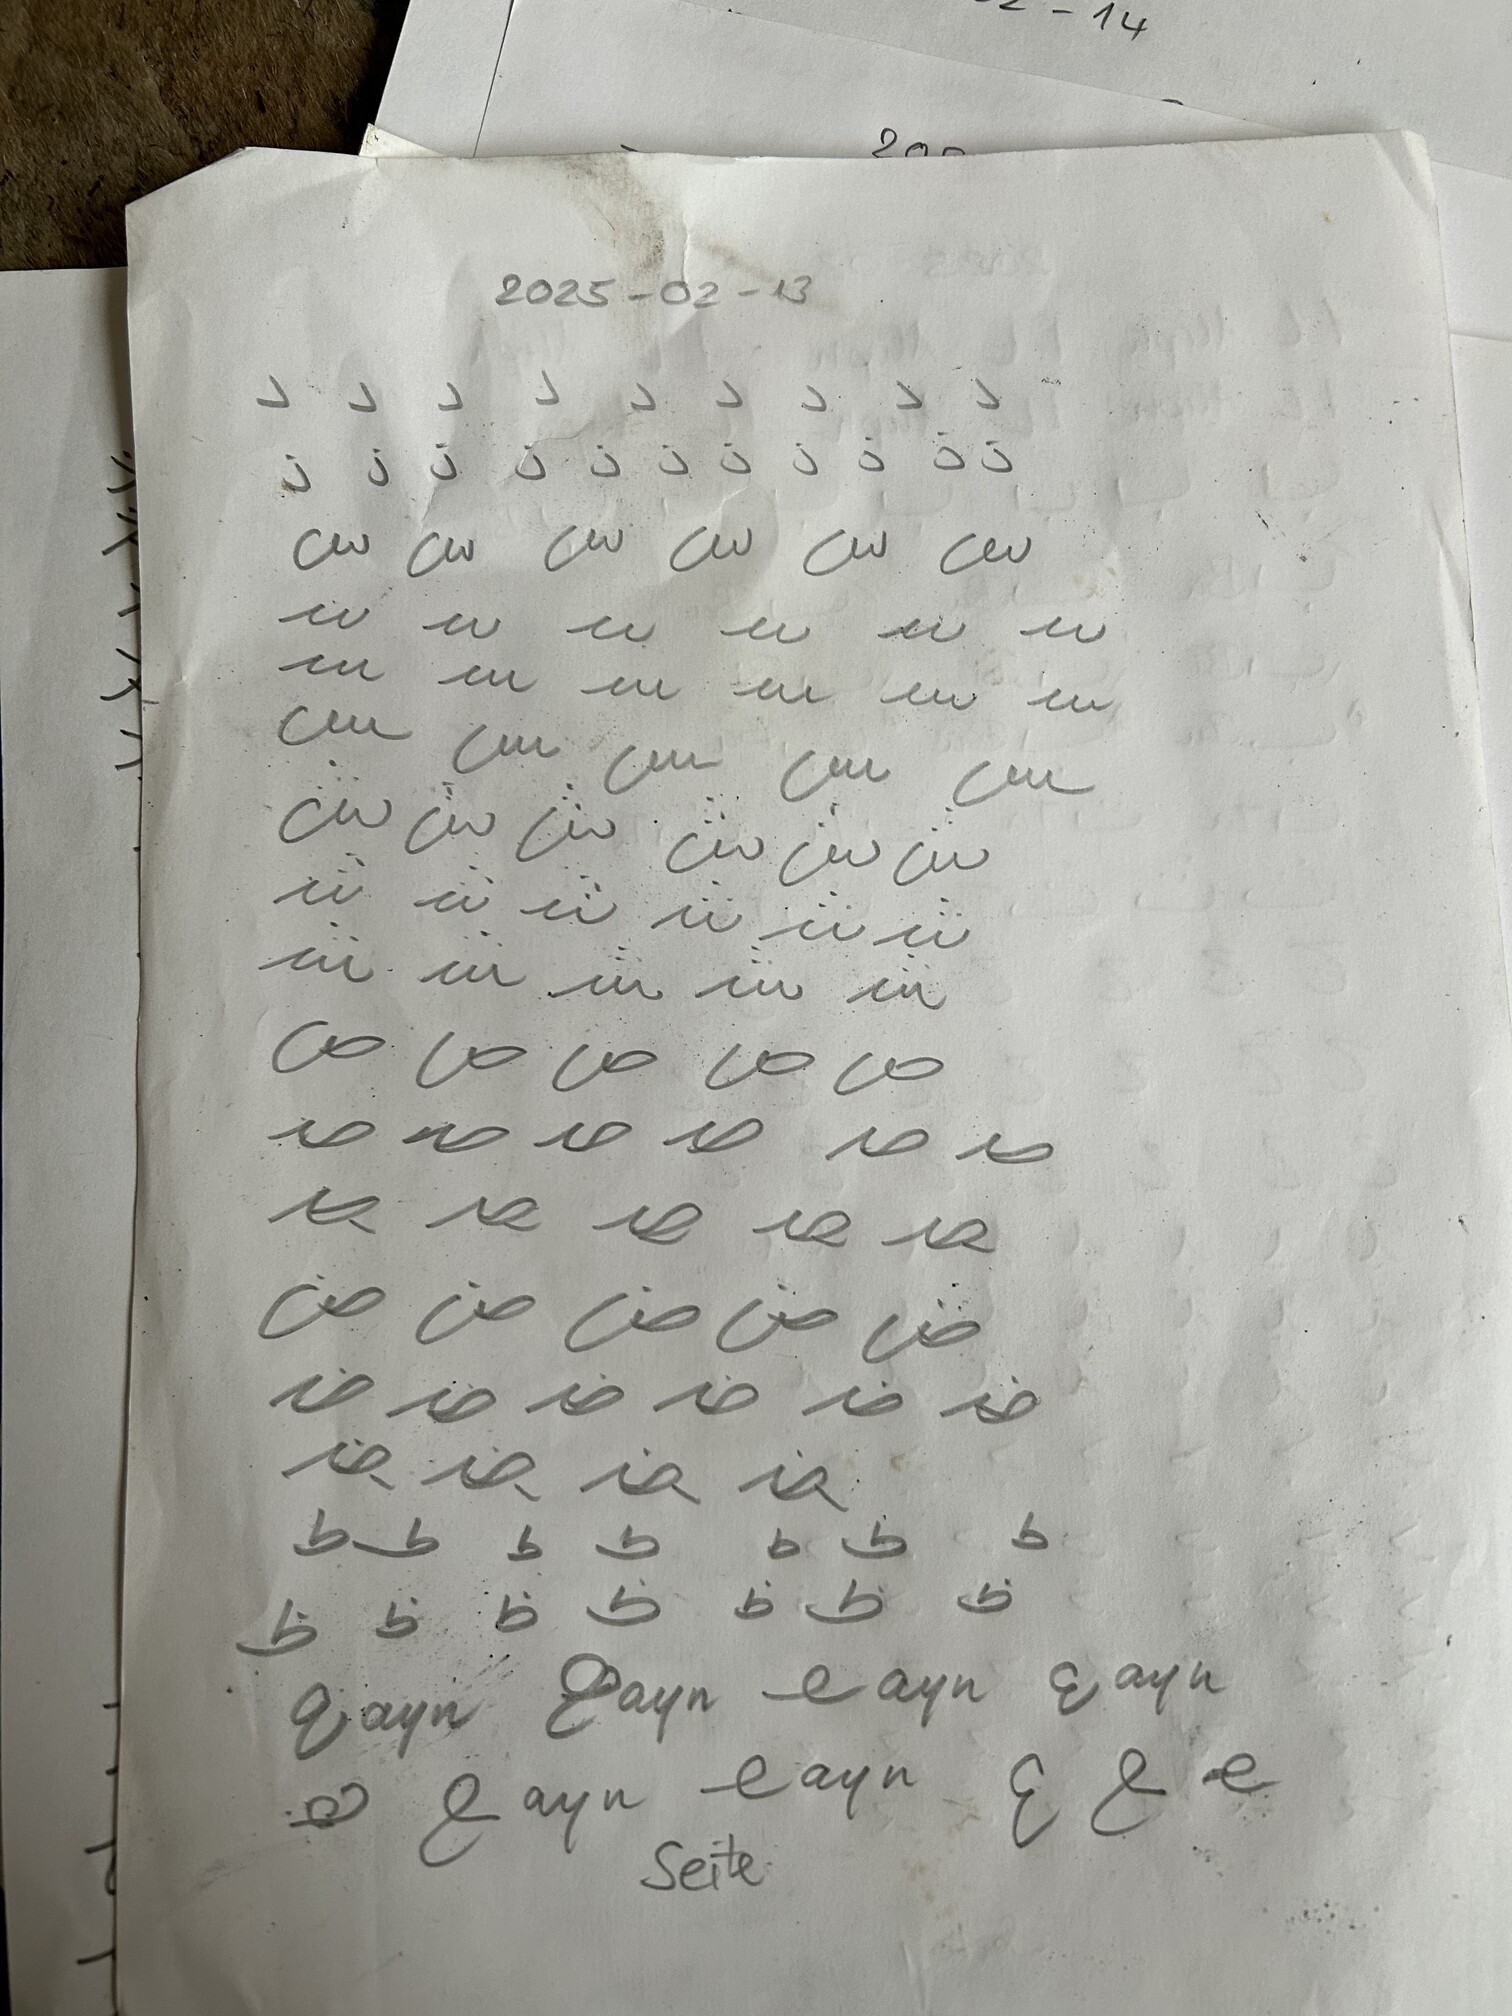 2 - 14
200
2025-02-13
د د د د د د د د د
ذ ذ ذ ذ ذ ذ ذ ذ ذ ذ ذ
س س س س س س
سـ سـ سـ سـ سـ سـ
ـسـ ـسـ ـسـ ـسـ ـسـ ـسـ
ـس ـس ـس ـس ـس
ش ش ش ش ش ش
شـ شـ شـ شـ شـ شـ
ـشـ ـشـ ـشـ ـشـ ـشـ
ص ص ص ص ص
صـ صـ صـ صـ صـ صـ
ـصـ ـصـ ـصـ ـصـ ـصـ
ض ض ض ض ض
ضـ ضـ ضـ ضـ ضـ ضـ
ـضـ ـضـ ـضـ ـضـ
ط ط ط ط ط ط ط
ظ ظ ظ ظ ظ ظ ظ
ع ayn ـع ayn ـعـ ayn ع ayn
ـع ayn ـعـ ayn ع ـع ـعـ
Seite